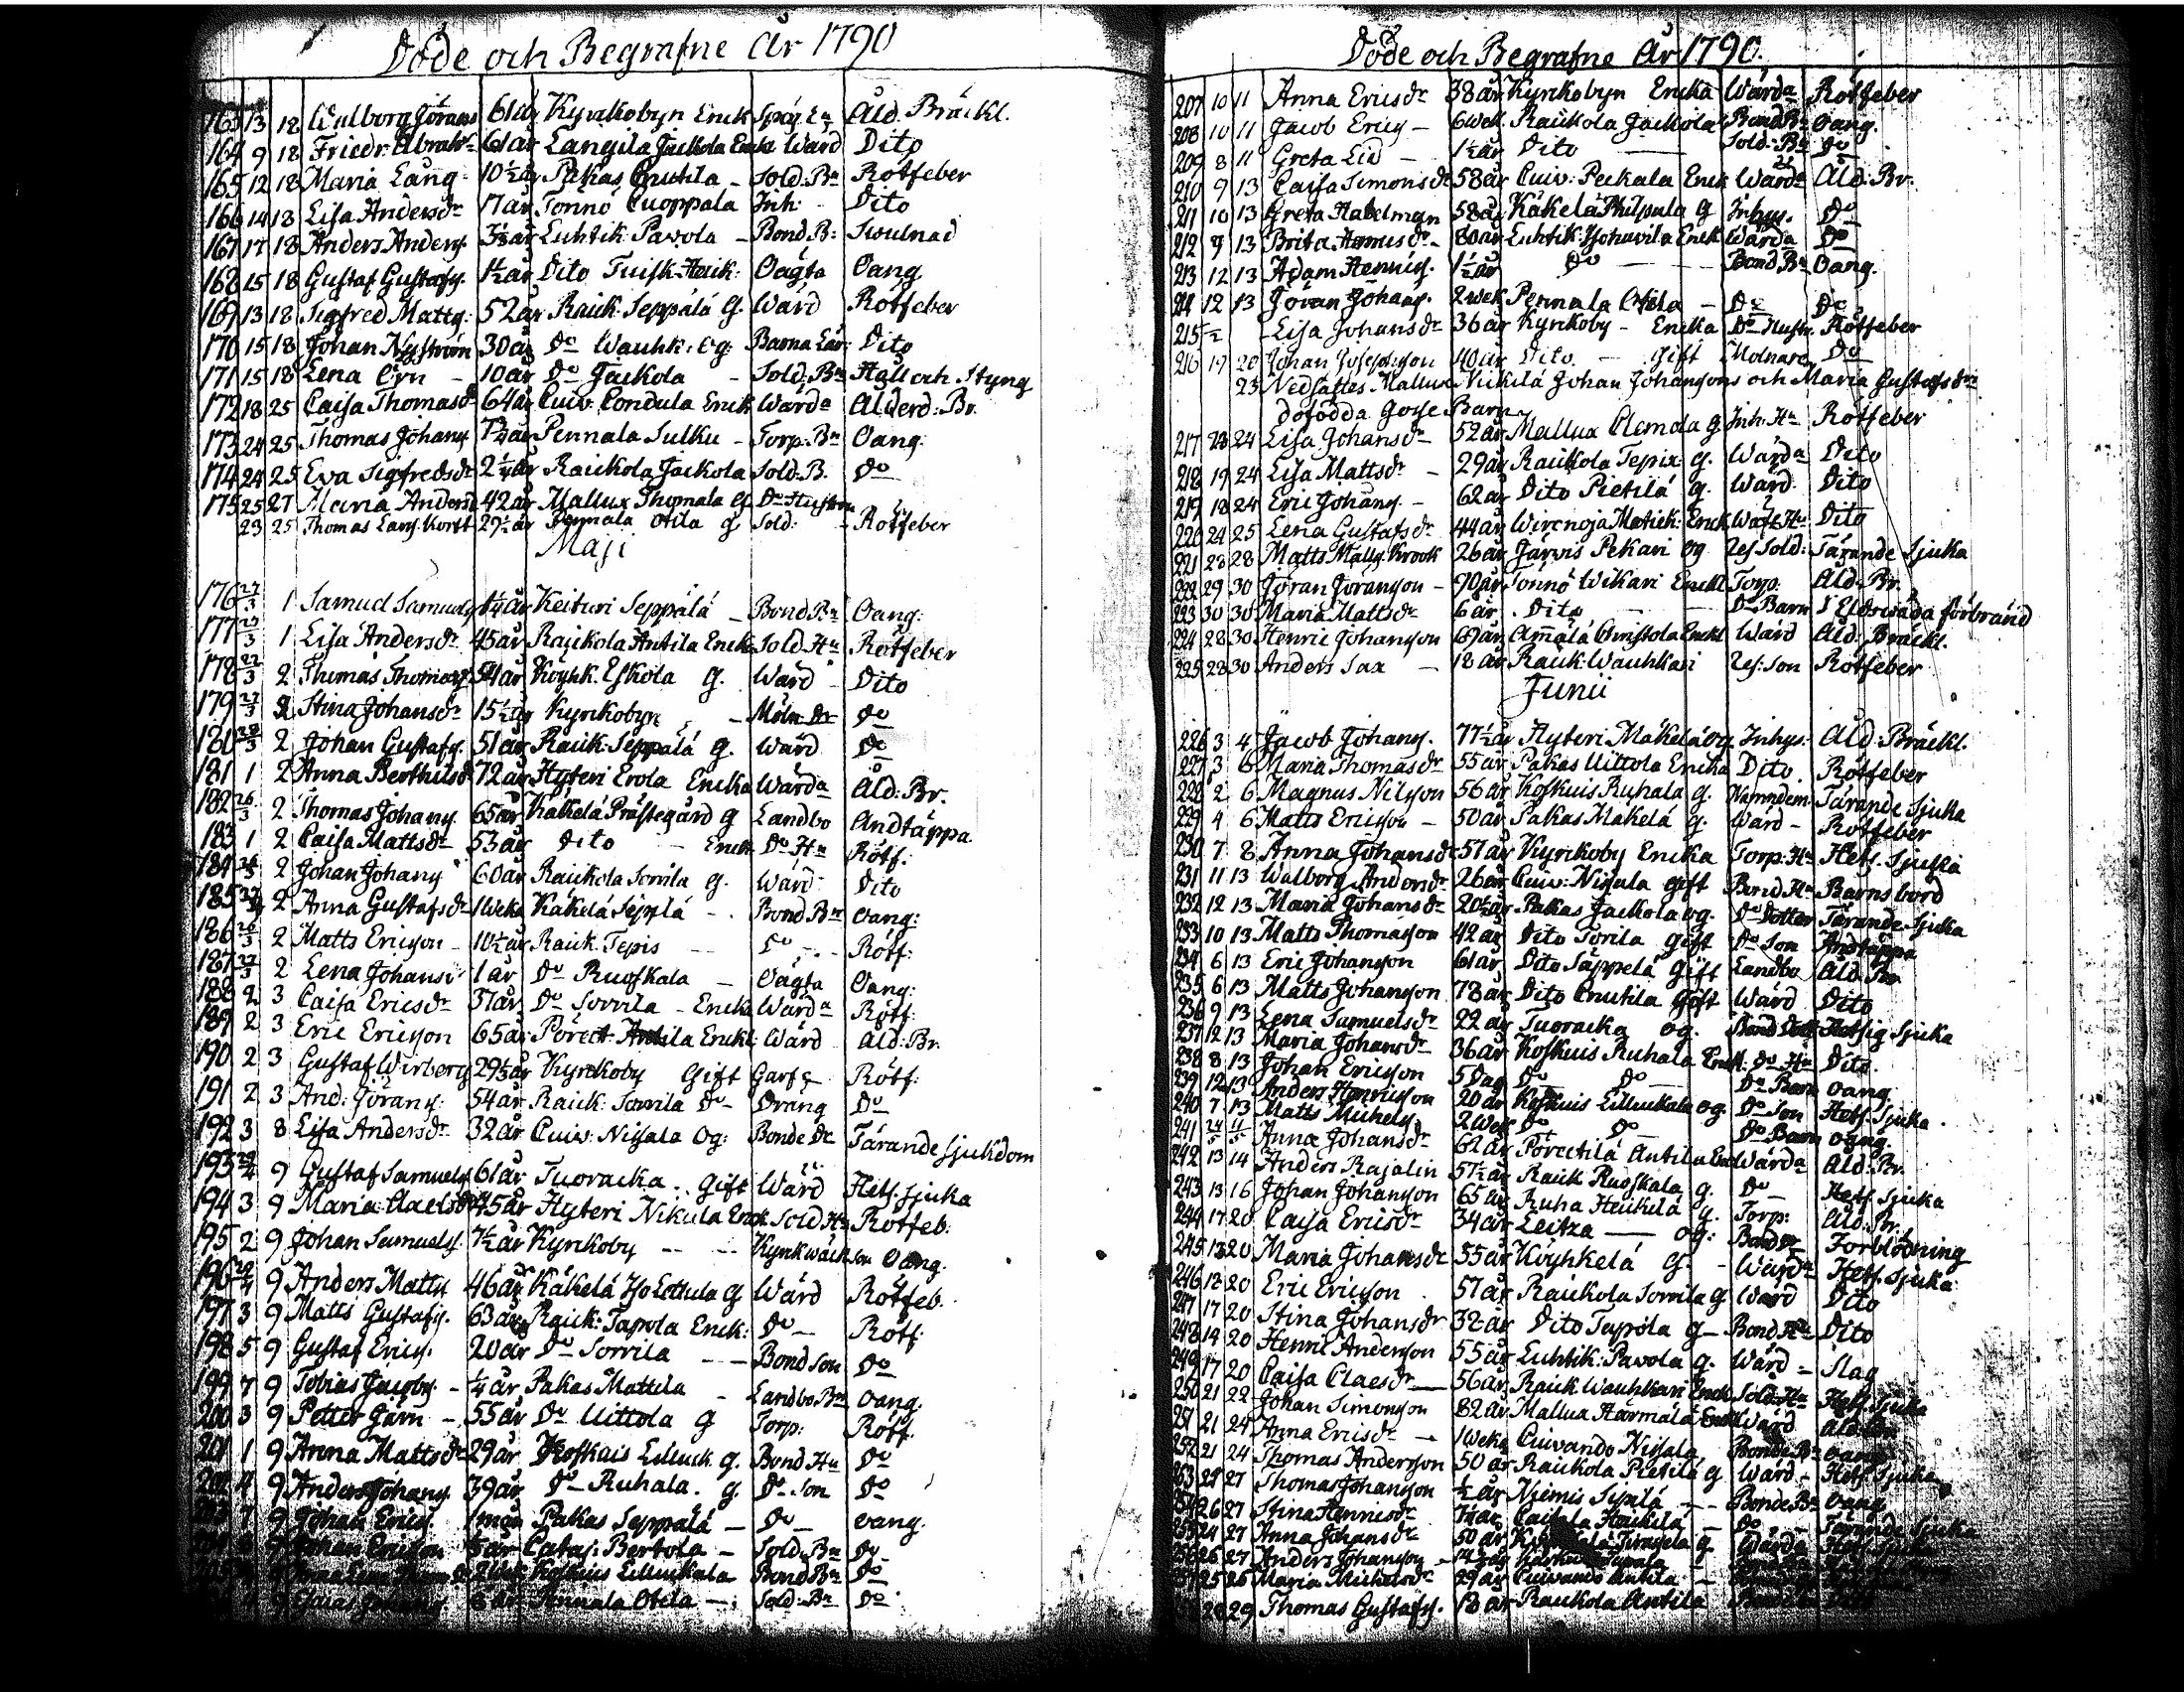 Döde och Begrafne År 1790
163 13 18 Walborg Görans 61 år Kyrkobyn Enck Åld. Bräckl.
164 9 18 Friedr. Abrah: 61 år Langila Jackola Enck Wärd Dito
165 12 18 Maria Lång 10½ år Pakas Cnutila - Sold: Bn Rötfeber
166 14 18 Lisa Andersdr 17 år Tönnö Cuoppala Inh: Dito
167 17 18 Anders Anders. 3½ år Luhtik: Pavola - Bond. B: Swulnad
168 15 18 Gustaf Gustafs. 1½ år Dito Tuisk-Heik: Oägta Oang.
169 13 18 Sigfred Matts: 52 år Raick: Seppälä G. Wärd Rötfeber
170 15 18 Johan Nyström 30 år Do Wauhk: Og: Barna Lär: Dito
171 15 18 Lena Örn - 10 år Do Jackola - Sold: Bn Håll och Styng
172 18 25 Caisa Thomasdr 64 år Cuiv. Condula Enck Wärda Ålderd: Br.
173 24 25 Thomas Johans Pennala Sulku - Torp: Bn Oang:
174 24 25 Eva Sigfredsdr 2¼ år Raickola Jackola Sold: B. Do
175 25 27 Maria Andersd 42 år Mallux Thomala G Do Hustru
23 25 Thomas Lars. Kortt 29½ år Pennala Otila g Sold: - Rötfeber
Maji
176 27/3 1 Samuel Samuels 1¼ år Keituri Seppälä - Bond Bn Oang:
177 27/3 1 Lisa Andersdr 45 år Raickola Antila Enck Sold Hu Rötfeber
178 27/3 2 Thomas Thomass. 54 år Köyhk. Eskola G. Wärd - Dito
179 27/3 2 Stina Johansdr 15½ år Kyrkobyn - Möln Dr Do
180 28/3 2 Johan Gustafs. 51 år Raick: Seppälä g. Wärd Do
181 1 2 Anna Berthilsd 72 år Hyteri Erola Encka Wärda Åld: Br.
182 26/3 2 Thomas Johans. 65 år Käkelä Prästegård g Landbo Andtäppa
183 1 2 Caisa Mattsdr 53 år Dito - Enck Do Hu Rötf:
184 2 Johan Johans 60 år Raickola Sorrila g. Wärd Dito
185 2 Anna Gustafsdr 1 Weka Käkelä Sippilä - Bond Bn Oang:
186 26/3 2 Matts Ericson - 10½ år Raick. Tepis - Do - Rötf:
187 27/3 2 Lena Johansd 1 år Do Ruoskala - Oägta Oang:
188 2 3 Caisa Ericsdr 51 år Do Sorrila - Encka Wärda Rötf:
189 2 3 Eric Ericson 65 år Porect Antila Enckl: Wärd Åld: Br.
190 2 3 Gustaf Wirberg 29½ år Kyrckoby Gift Garf Rötf:
191 2 3 And: Görans: 54 år Raick: Sorrila Do - Dräng Do
192 3 8 Lisa Andersdr 32 år Cuiv: Nisala Og: Bonde Dr Tärande Sjukdom
193 29/4 9 Gustaf Samuels 61 år Tuoracka . . Gift Wärd Hets. Sjuka
194 3 9 Maria Claesdr 45 år Hyteri Nikula Enck Sold Hu Rötfeb:
195 2 9 Johan Samuels. 7½ år Kyrkoby - - Kyrkwäck: Son Oang.
196 29/4 9 Anders Matts 46 år Käkelä Iso Lottula g Wärd Rötfeb.
197 3 9 Matts Gustafs. 63 år Raick: Tapola Enck: Do - Rötf:
198 5 9 Gustaf Erics. 20 år Do Sorrila - - Bond Son Do
199 7 9 Tobias Jacobs. - ¼ år Pakas Mattila - Landbo Bn Oang.
200 3 9 Petter Järn - 55 år Do Uittola g Torp: Rötf.
201 1 9 Anna Mattsdr 29 år Koskuis Lilluck. g. Bond Hu Do
202 4 9 Anders Johans. 39 år Do Ruhala. g. Do Son Do
203 7 9 Johan Erics. 1 mån Pakas Seppälä - Do - oang.
9 Johan Catas: Bertola - Sold: Bn Do
9 Koskuis Lilluckala Bond Bn Do
4 9 Johans. 6 år Pennala Otila - : Sold: Bn Do
Döde och Begrafne År 1790.
207 10 11 Anna Ericsdr 38 år Kyrkobyn Encka Wärda Rötfeber
208 10 11 Jacob Erics - 6 wek. Raickola Jackola Bond Bn Oang.
209 8 11 Greta Lid - 1½ år Dito - Sold: Bn Do
210 9 13 Caisa Simonsdr 58 år Cuiv: Peckala Enck Wärda Åld: Br.
211 10 13 Greta Habelman 58 år Käkelä Philpula g Inhys. Do
212 9 13 Brita Hennusdr - 80 år Luhtik: Yohavila Enck Wärda Do
213 12 13 Adam Hennics. 1½ år Do - Bond Bn Oang.
214 12 13 Jöran Johans. 2 wek Pennala Otila - Do Do
215 Lisa Johansdr 36 år Kyrkoby - Encka Do Hustr. Rötfeber
216 19 20 Johan Josephson 40 år Dito - gift Mölnare Do
23 Nedsattes Mallux Nickilä Johan Johansons och Maria Gustafsdrs
dödfödda Gosse Barn
217 23 24 Lisa Johansdr 52 år Mallux Clemola g Inh: Hu Rötfeber
218 19 24 Lisa Mattsdr - 29 år Raickola Tepix g. Wärda Dito
219 18 24 Eric Johans. - 62 år Dito Pietilä g. Wärd. Dito
220 24 25 Lena Gustafsdr 44 år Wirenoja Matick: Enck Wäft: Hu Dito
221 28 28 Matts Matts. Krook 26 år Järvis Pekari Og Res Sold: Tärande Sjuka
222 29 30 Jöran Jöranson - 70 år Tönnö Wikari Enckl Torp: Åld: Br.
223 30 30 Maria Mattsdr 6 år . Dito - Do Barn i Eldswåda förbränd
224 28 30 Henric Johanson 69 år Ammälä Christola Enckl Wärd Åld: Bräckl.
225 28 30 Anders Sax - 18 år Raick: Wauhkari Res: Son Rötfeber
Junii
226 3 4 Jacob Johans. 77½ år Hyteri Mäkelä Og. Inhys: Åld: Bräckl.
227 3 6 Maria Thomasdr 55 år Pakas Uittola Encka Dito. Rötfeber
228 2 6 Magnus Nilsson 56 år Koskuis Ruhala g. Nämndem: Tärande Sjuka
229 4 6 Matts Ericson - 50 år Pakas Mäkelä g. Wärd - Rötfeber
230 7 8 Anna Johansdr 57 år Kyrckoby Encka Torp: Hu Hets. Sjuka
231 11 13 Walborg Andersdr 26 år Cuiv: Nisula Gift Bond Hu Barnsbörd
232 12 13 Maria Johansdr 20½ år Pakas Jackola og. Do Dotter Tärande Sjuka
233 10 13 Matts Thomasson 42 år Dito Torila Gift Do Son Andtäppa
234 6 13 Eric Johanson 61 år Dito Säppelä Gift Landbo Åld: Br.
235 6 13 Matts Johanson 78 år Dito Cnutila Gift Wärd Dito
236 9 13 Lena Samuelsdr 22 år Tuoracka og. Bond Dott: Hetsig Sjuka
237 12 13 Maria Johansdr 36 år Koskuis Ruhala Enck: Do Hu Dito
238 8 13 Johan Ericson 5 Dag Do Do Do Barn oang.
239 12 13 Anders Henricson 20 år Koskuis Lilluckala og. Do Son Hets. Sjuka
240 7 13 Matts Michels. 2 Wek Do Do Do Barn oang.
241 Anna Johansdr 62 år Porectilä Antila Enck Wärda Åld: Br.
242 13 14 Anders Rajalin 57½ år Raick Ruoskala g. Do Hets. Sjuka
243 13 16 Johan Johanson 65 år Ruha Heickelä g. Torp: Åld: Br.
244 17 20 Caisa Ericsdr 34 år Leitza - Og: Förblödning
245 18 20 Maria Johansdr 55 år Köyhkelä g. - Wärda Hets. Sjuka
246 12 20 Eric Ericson 57 år Raickola Sorrila g Wärd Dito
247 17 20 Stina Johansdr 32 år Dito Tapola g - Bond Hu Dito
248 14 20 Henric Anderson 55 år Luhtik: Pavola g. Wärd - Slag
249 17 20 Caisa Claesdr - 56 år Raick Wauhkari Enck Sold: Hu Hets. Sjuka
250 21 22 Johan Simonson 82 år Mallux Härmälä Enck Wärd Åld: Br.
251 21 24 Anna Ericsdr - 1 Weka Cuivando Nisala Bonde Bn oang.
252 21 24 Thomas Anderson 50 år Raickola Pietilä g Wärd - Hets. Sjuka
253 27 27 Thomas Johanson ½ år Niemis Sipilä - Bonde Bn oang
254 26 27 Stina Hennicsdr Heickilä - Do - Tärande Sjuka
255 24 27 Anna Johansdr 50 år g. Wärda Hets. Sjuka
256 26 27 Anders Johanson -
257 25 26 Maria Michelsdr 29 år Cuivando Antila -
28 29 Thomas Gustafs. 18 år Raickola Antila